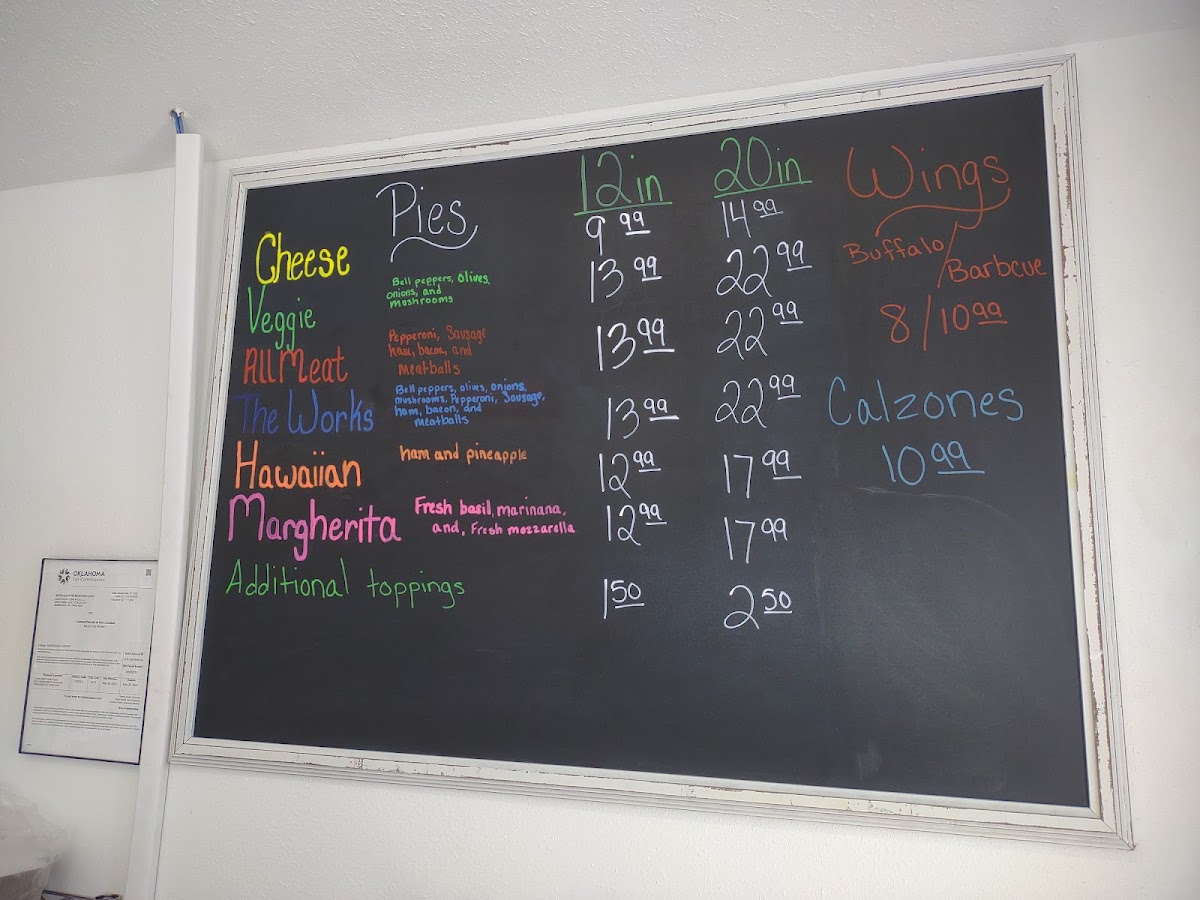 Pies 12in 20in
Cheese 9 99 14 99
Veggie Bell peppers, olives,
onions, and
mushrooms 13 99 22 99
All Meat Pepperoni, Sausage
ham, bacon, and
meatballs 13 99 22 99
The Works Bell peppers, olives, onions,
mushrooms, Pepperoni, Sausage,
ham, bacon, and
meatballs 13 99 22 99
Hawaiian ham and pineapple 12 99 17 99
Margherita Fresh basil, marinana,
and, Fresh mozzarella 12 99 17 99
Additional toppings 1 50 2 50
Wings
Buffalo/
Barbcue
8/10 99
Calzones
10 99
OKLAHOMA